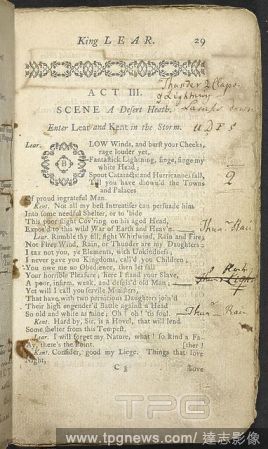 King LEAR. 29
Thunder & Claps
of Lightning
Lamps down
ACT III.
SCENE A Desert Heath.
UDFS
Enter Lear and Kent in the Storm.
Lear. BLOW Winds, and burst your Cheeks,
rage louder yet,
Fantastick Lightning, singe, singe my
white Head;
Spout Cataracts, and Hurricanes fall,
2
Till you have drown'd the Towns
and Palaces
Of proud ingrateful Man.
Kent. Not all my best Intreaties can persuade him
Into some needful Shelter, or to 'bide
This poor slight Cov'ring on his aged Head,
Expos'd to this wild War of Earth and Heav'n.
Lear. Rumble thy fill, fight Whirlwind, Rain and Fire;
Not Fire, Wind, Rain, or Thunder are my Daughters:
I tax not you, ye Elements, with Unkindness;
I never gave you Kingdoms, call'd you Children,
You owe me no Obedience, then let fall
Your horrible Pleasure, here I stand your Slave,
A poor, infirm, weak, and despis'd old Man;
Yet will I call you servile Ministers,
That have with two pernicious Daughters join'd
Their high engender'd Battle against a Head
So old and white as mine; Oh! oh! 'tis foul.
Kent. Hard by, Sir, is a Hovel, that will lend
Some Shelter from this Tempest.
Lear. I will forget my Nature, what! so kind a Fa-
ay, there's the Point. [ther!
Kent. Consider, good my Liege, Things that love
Night,
C 3 Love
TPG
www.tpgnews.com/達志影像